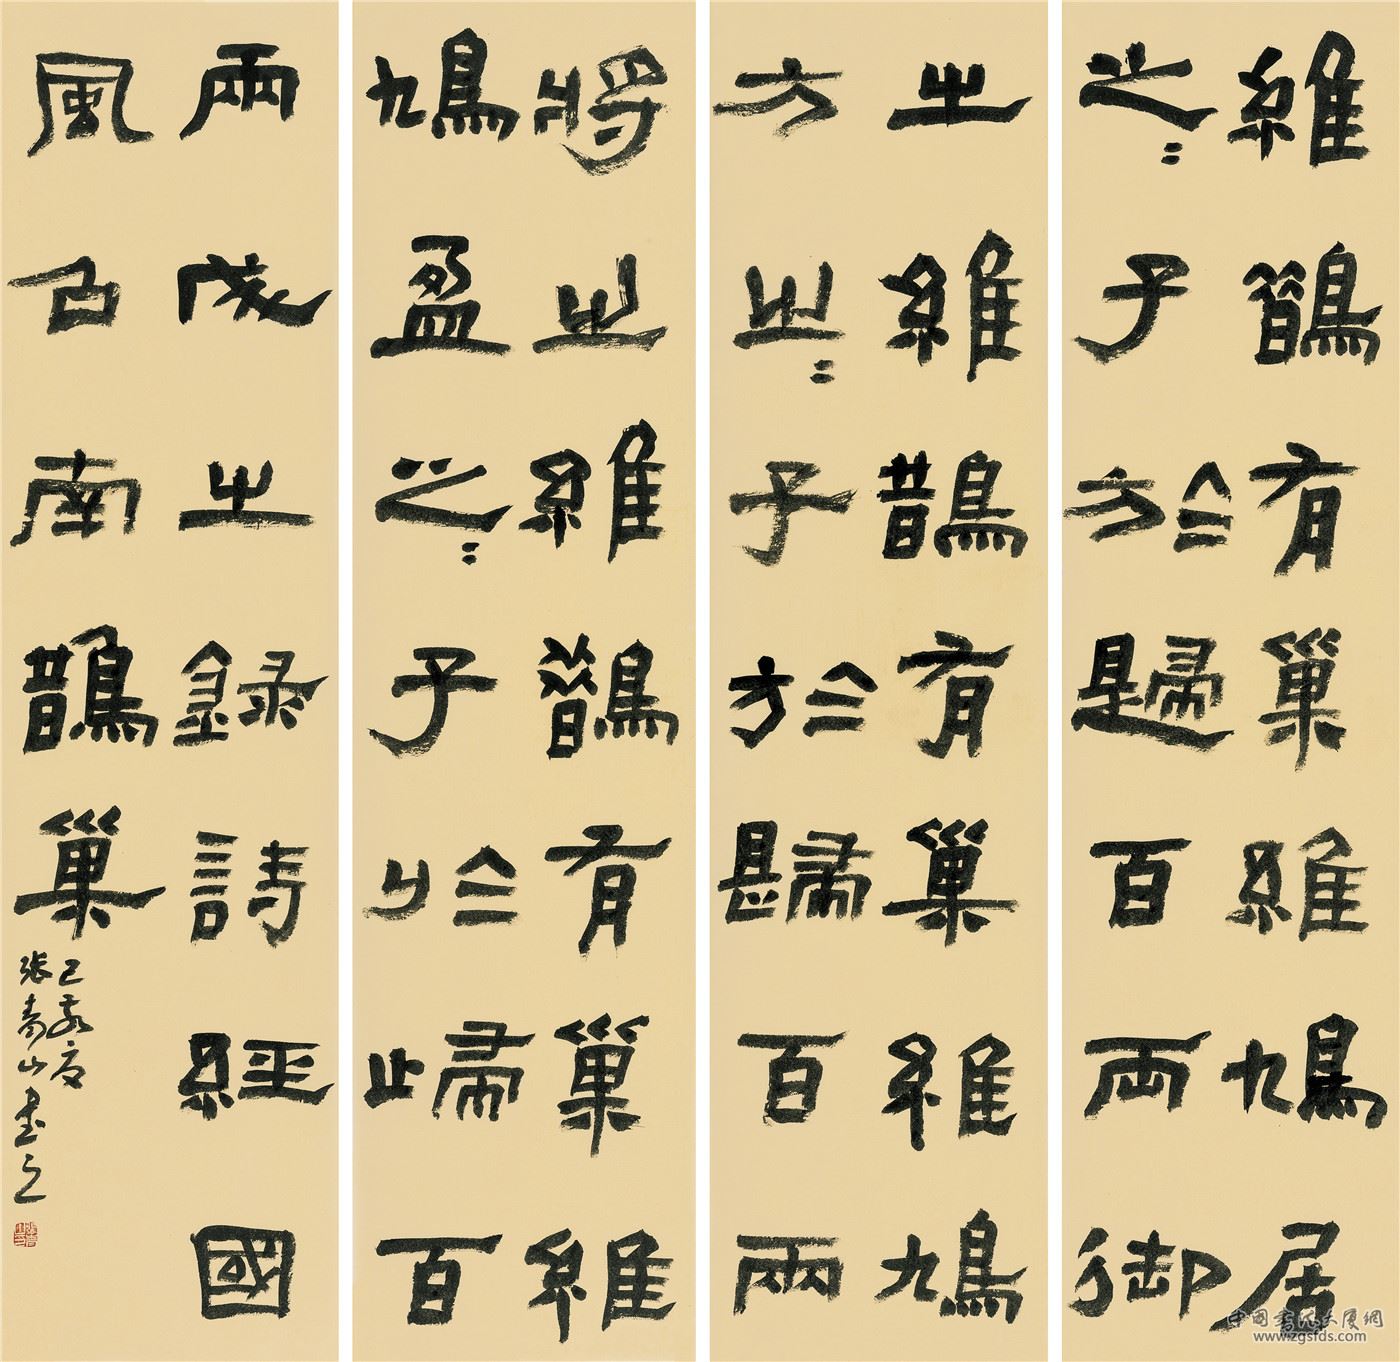 維鵲有巢維鳩居
之〻子於歸百両御
之維鵲有巢維鳩
方之〻子於歸百兩
將之維鵲有巢維
鳩盈之〻子於歸百
兩成之錄詩經國
風召南鵲巢
己亥夏
張山書之
中国书法大展網
www.zgsfds.com